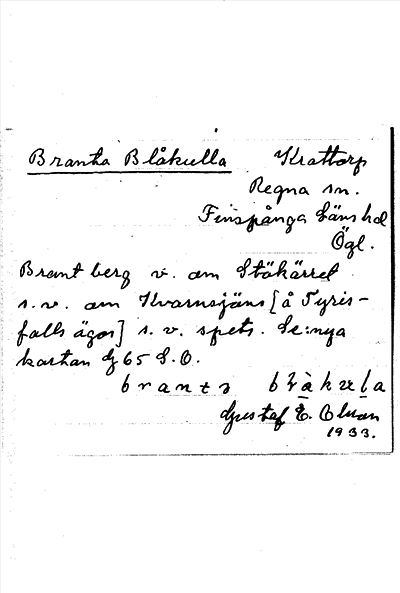 Branta Blåkulla Krattorp
Regna sn.
Finspånga läns hd
Ögl.
Brant berg v. om Stökärret
s.v. om Kvarnsjöns [å Tyris-
falls ägor] s.v. spets. Se: nya
kartan G 65 S.O.
brantɜ
Gustaf E. Olson
1933.